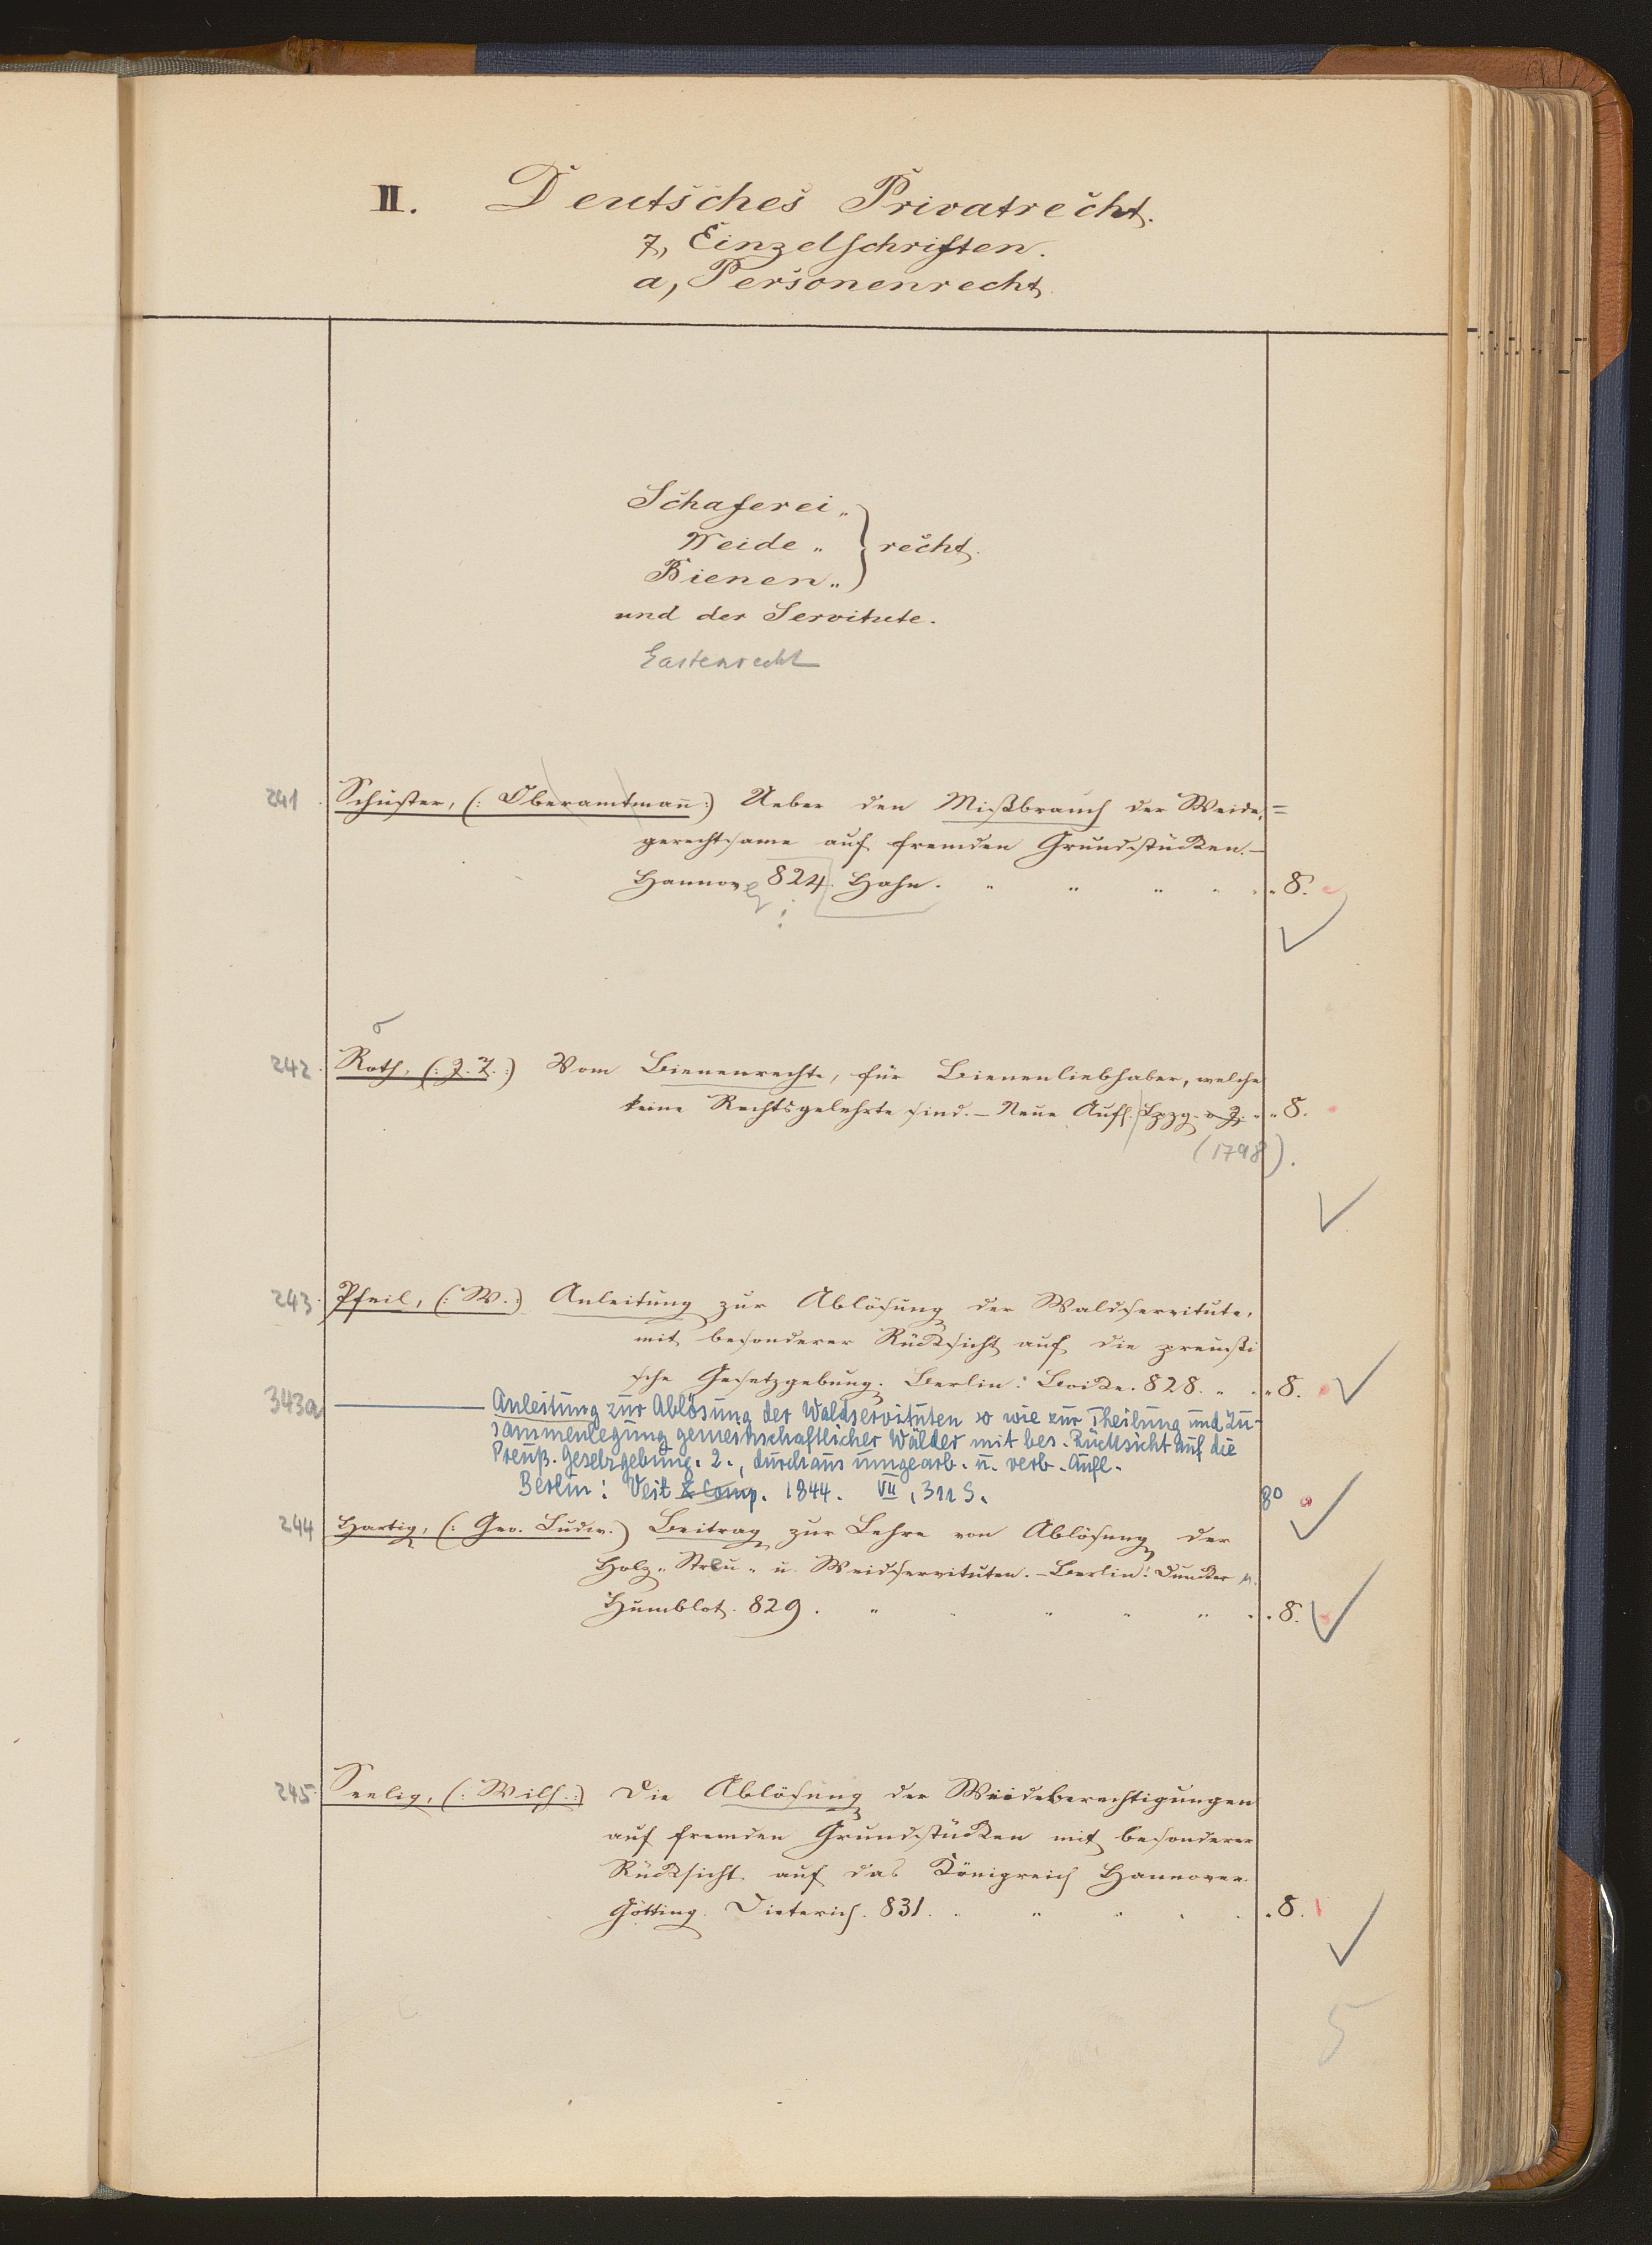 II. Deutsches Privatrecht.
7, Einzelschriften.
a, Personenrecht.
Schaferei„
Weide „ } recht.
Bienen„
und der Servitute.
Gartenrecht
241 Schuster, (: Oberamtmann:) Ueber den Mißbrauch der Weide=
gerechtsame auf fremden Grundstücken.—
Hannover 824. Hahn. „ „ „ „ „ 8.
242 Roth, (: J. F. :) Vom Bienenrechte, für Bienenliebhaber, welche
keine Rechtsgelehrte sind.— Neue Aufl. Lpzg. o. J. „ „ 8.
(1798).
243 Pfeil, (: W. :) Anleitung zur Ablösung der Waldservitute,
mit besonderer Rücksicht auf die preußi
sche Gesetzgebung. Berlin: Boicke. 828. „ „ 8.
343a ——— Anleitung zur Ablösung der Waldservituten so wie zur Theilung und Zu-
sammenlegung gemeinschaftlicher Wälder mit bes. Rücksicht auf die
Preuß. Gesetzgebung. 2., durchaus umgearb. u. verb. Aufl.
Berlin: Veit & Comp. 1844. VII, 311 S. 8°
244 Hartig, (: Geo. Ludw. :) Beitrag zur Lehre von Ablösung der
Holz„ Streu „ u. Weidservituten.— Berlin: Duncker u.
Humblot. 829. „ „ „ „ „ „ 8.
245 Seelig, (: Wilh. :) Die Ablösung der Weideberechtigungen
auf fremden Grundstücken mit besonderer
Rücksicht auf das Königreich Hannover.
Götting. Dieterich. 831. „ „ „ „ „ 8.
5